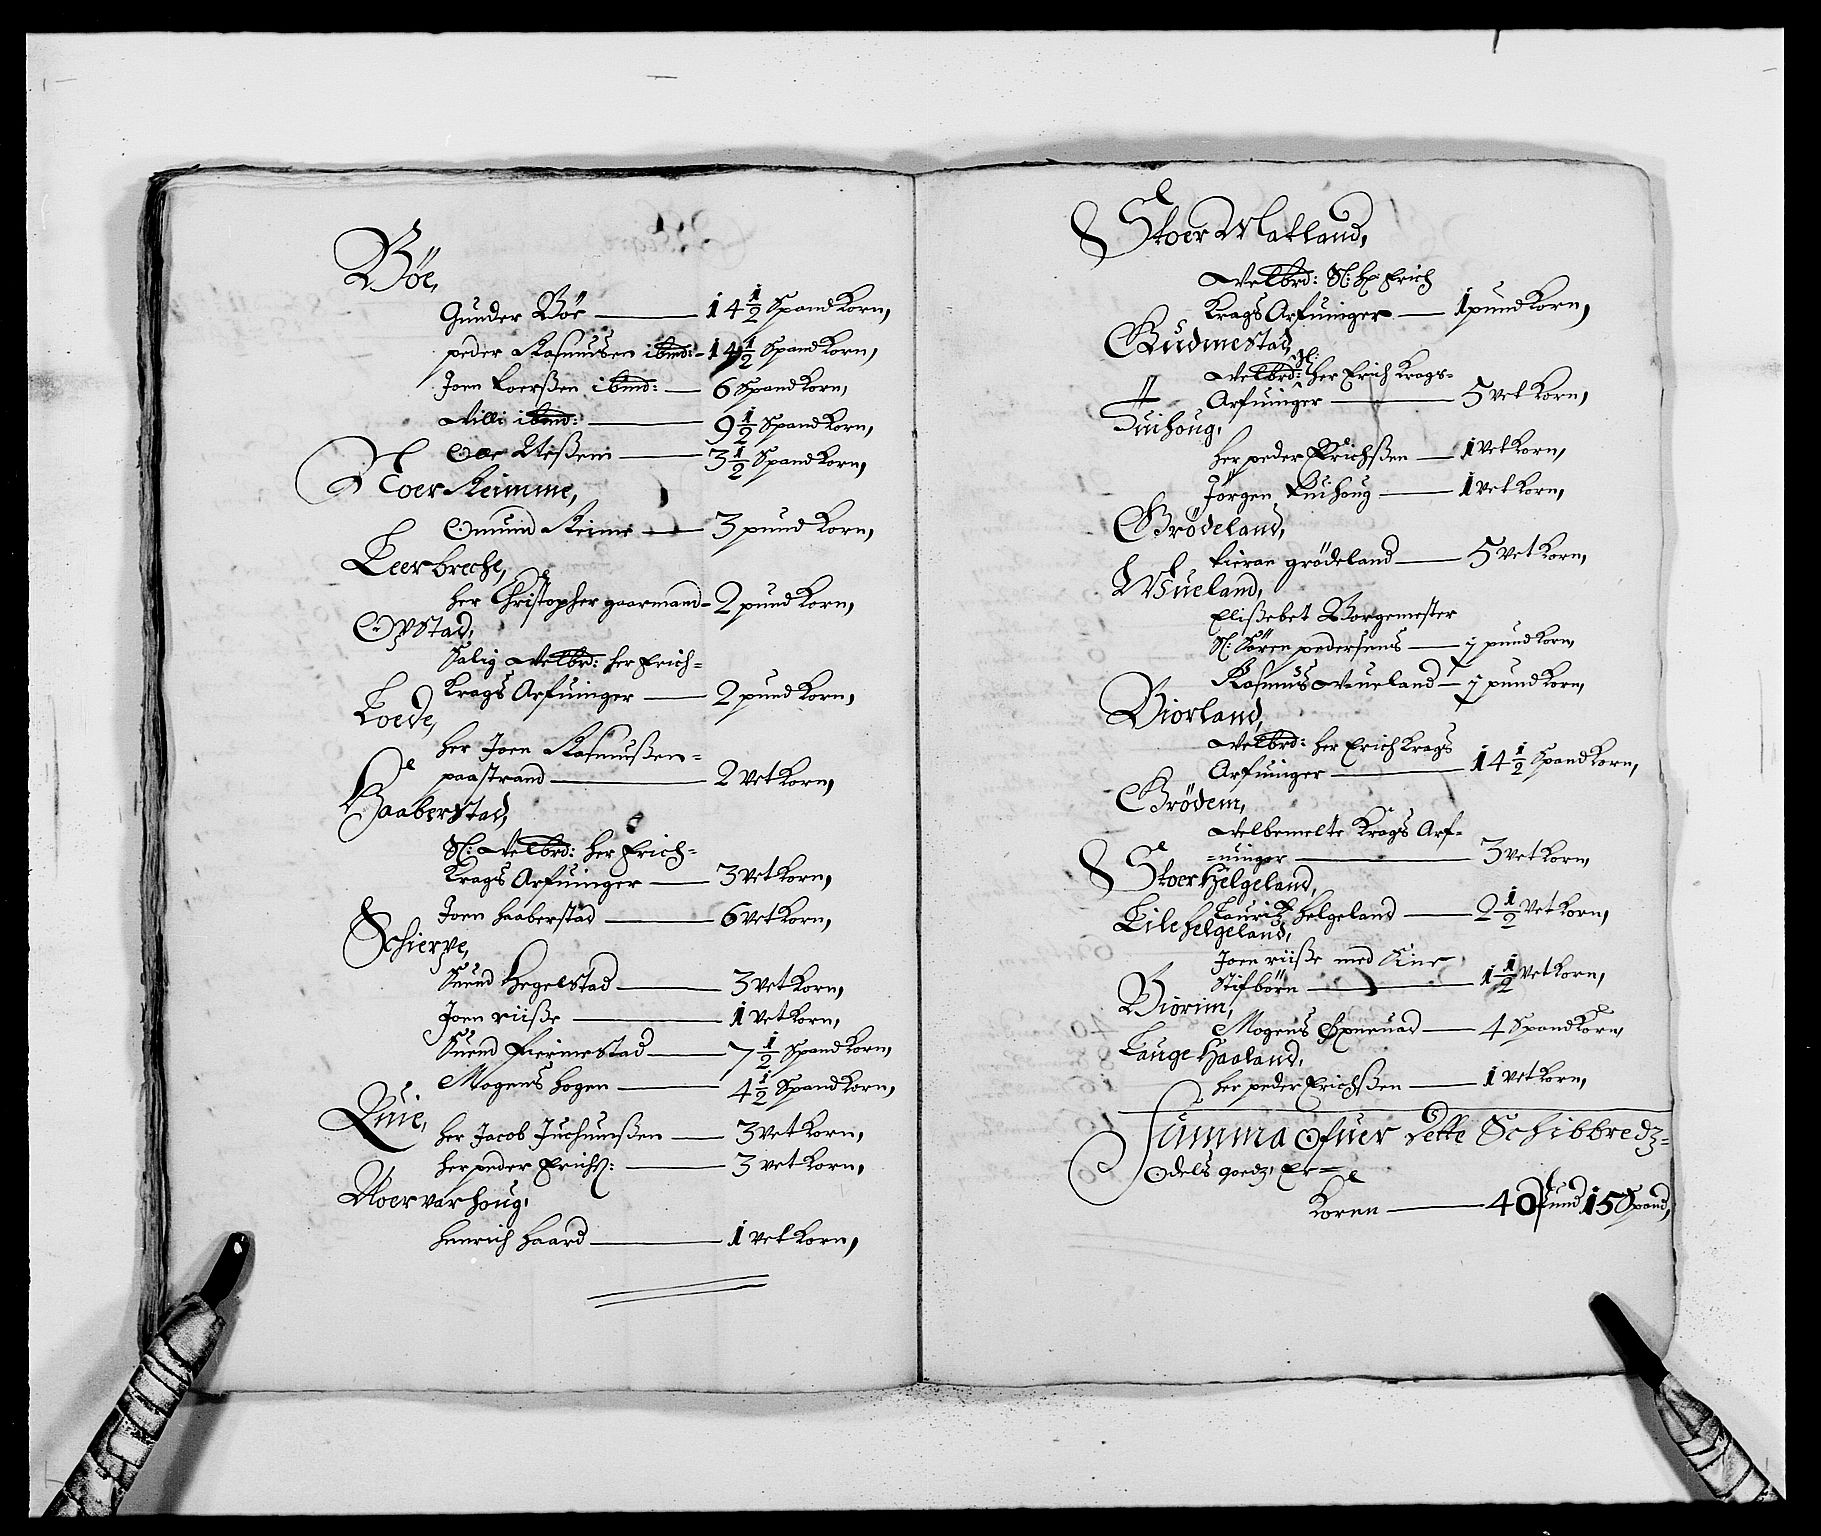 Böe,
Gunder Böe — 14 1/2 Spand Korn,
peder Rasmusen ibmd: - 14 1/2 Spand Korn,
Joen ibmd: — 6 Spand Korn,
Villi ibmd: — 9 1/2 Spand Korn,
Ole — 3 1/2 Spand Korn,
Noer Reimme,
Omund Reime — 3 pund Korn,
Leerbreche,
her Christopher gaarmand - 2 pund Korn,
Opstad,
Salig Velbrd: her Erich=
Krags Arfuinger — 2 pund Korn,
Loede,
her Joen Rasmusßen=
paa strand — 2 vet Korn,
Haaberstad,
Sl: Velbrd: her Erich=
Krags Arfuinger — 3 vet Korn,
Joen haaberstad — 6 vet Korn,
Schierpe,
Suend Hegelstad — 3 vet Korn,
Joen riiße — 1 vet Korn,
Suend Fierimestad — 7 1/2 Spand Korn,
Mogens hogen — 4 1/2 Spand Korn,
Quie,
her Jacob Juchumßen — 3 vet Korn,
her peder Erichß: — 3 vet Korn,
Noer varhoug,
hinrich haard — 1 vet Korn,
Stoer Matland,
Velbrd: Sl: Hr: Erich
Krags Arfuinger — 1 pund Korn,
Gudmestad,
Velbrd: Sl: her Erich Krags=
Arfuinger — 5 vet Korn,
Tuihoug,
her peder Erichßen — 1 vet Korn,
Jörgen Tuihoug — 1 vet Korn,
Grödeland,
grödeland — 5 vet Korn,
Wueland,
Elißebet Borgemester
Sl: Sören pedersens — j pund Korn,
Rasmus Vueland — j pund Korn,
Biorland,
Velbrd: her Erich Krags
Arfuinger — 14 1/2 Spand Korn,
Grödem,
Velbemelte Krags Arf=
=uinger — 3 vet Korn,
Stoer Helgeland,
Lauritz helgeland — 2 1/2 vet Korn,
Lile helgeland,
Joen riiße med Sine
Stifbörn — 1 1/2 vet Korn,
Biorim,
Mogens — 4 Spand Korn,
Lauge Haaland,
her peder Erichßen — 1 vet Korn,
Summa Ofuer dette Schibbredz=
Odels goedz, Er=
Koren — 40 pund 15 Spand,